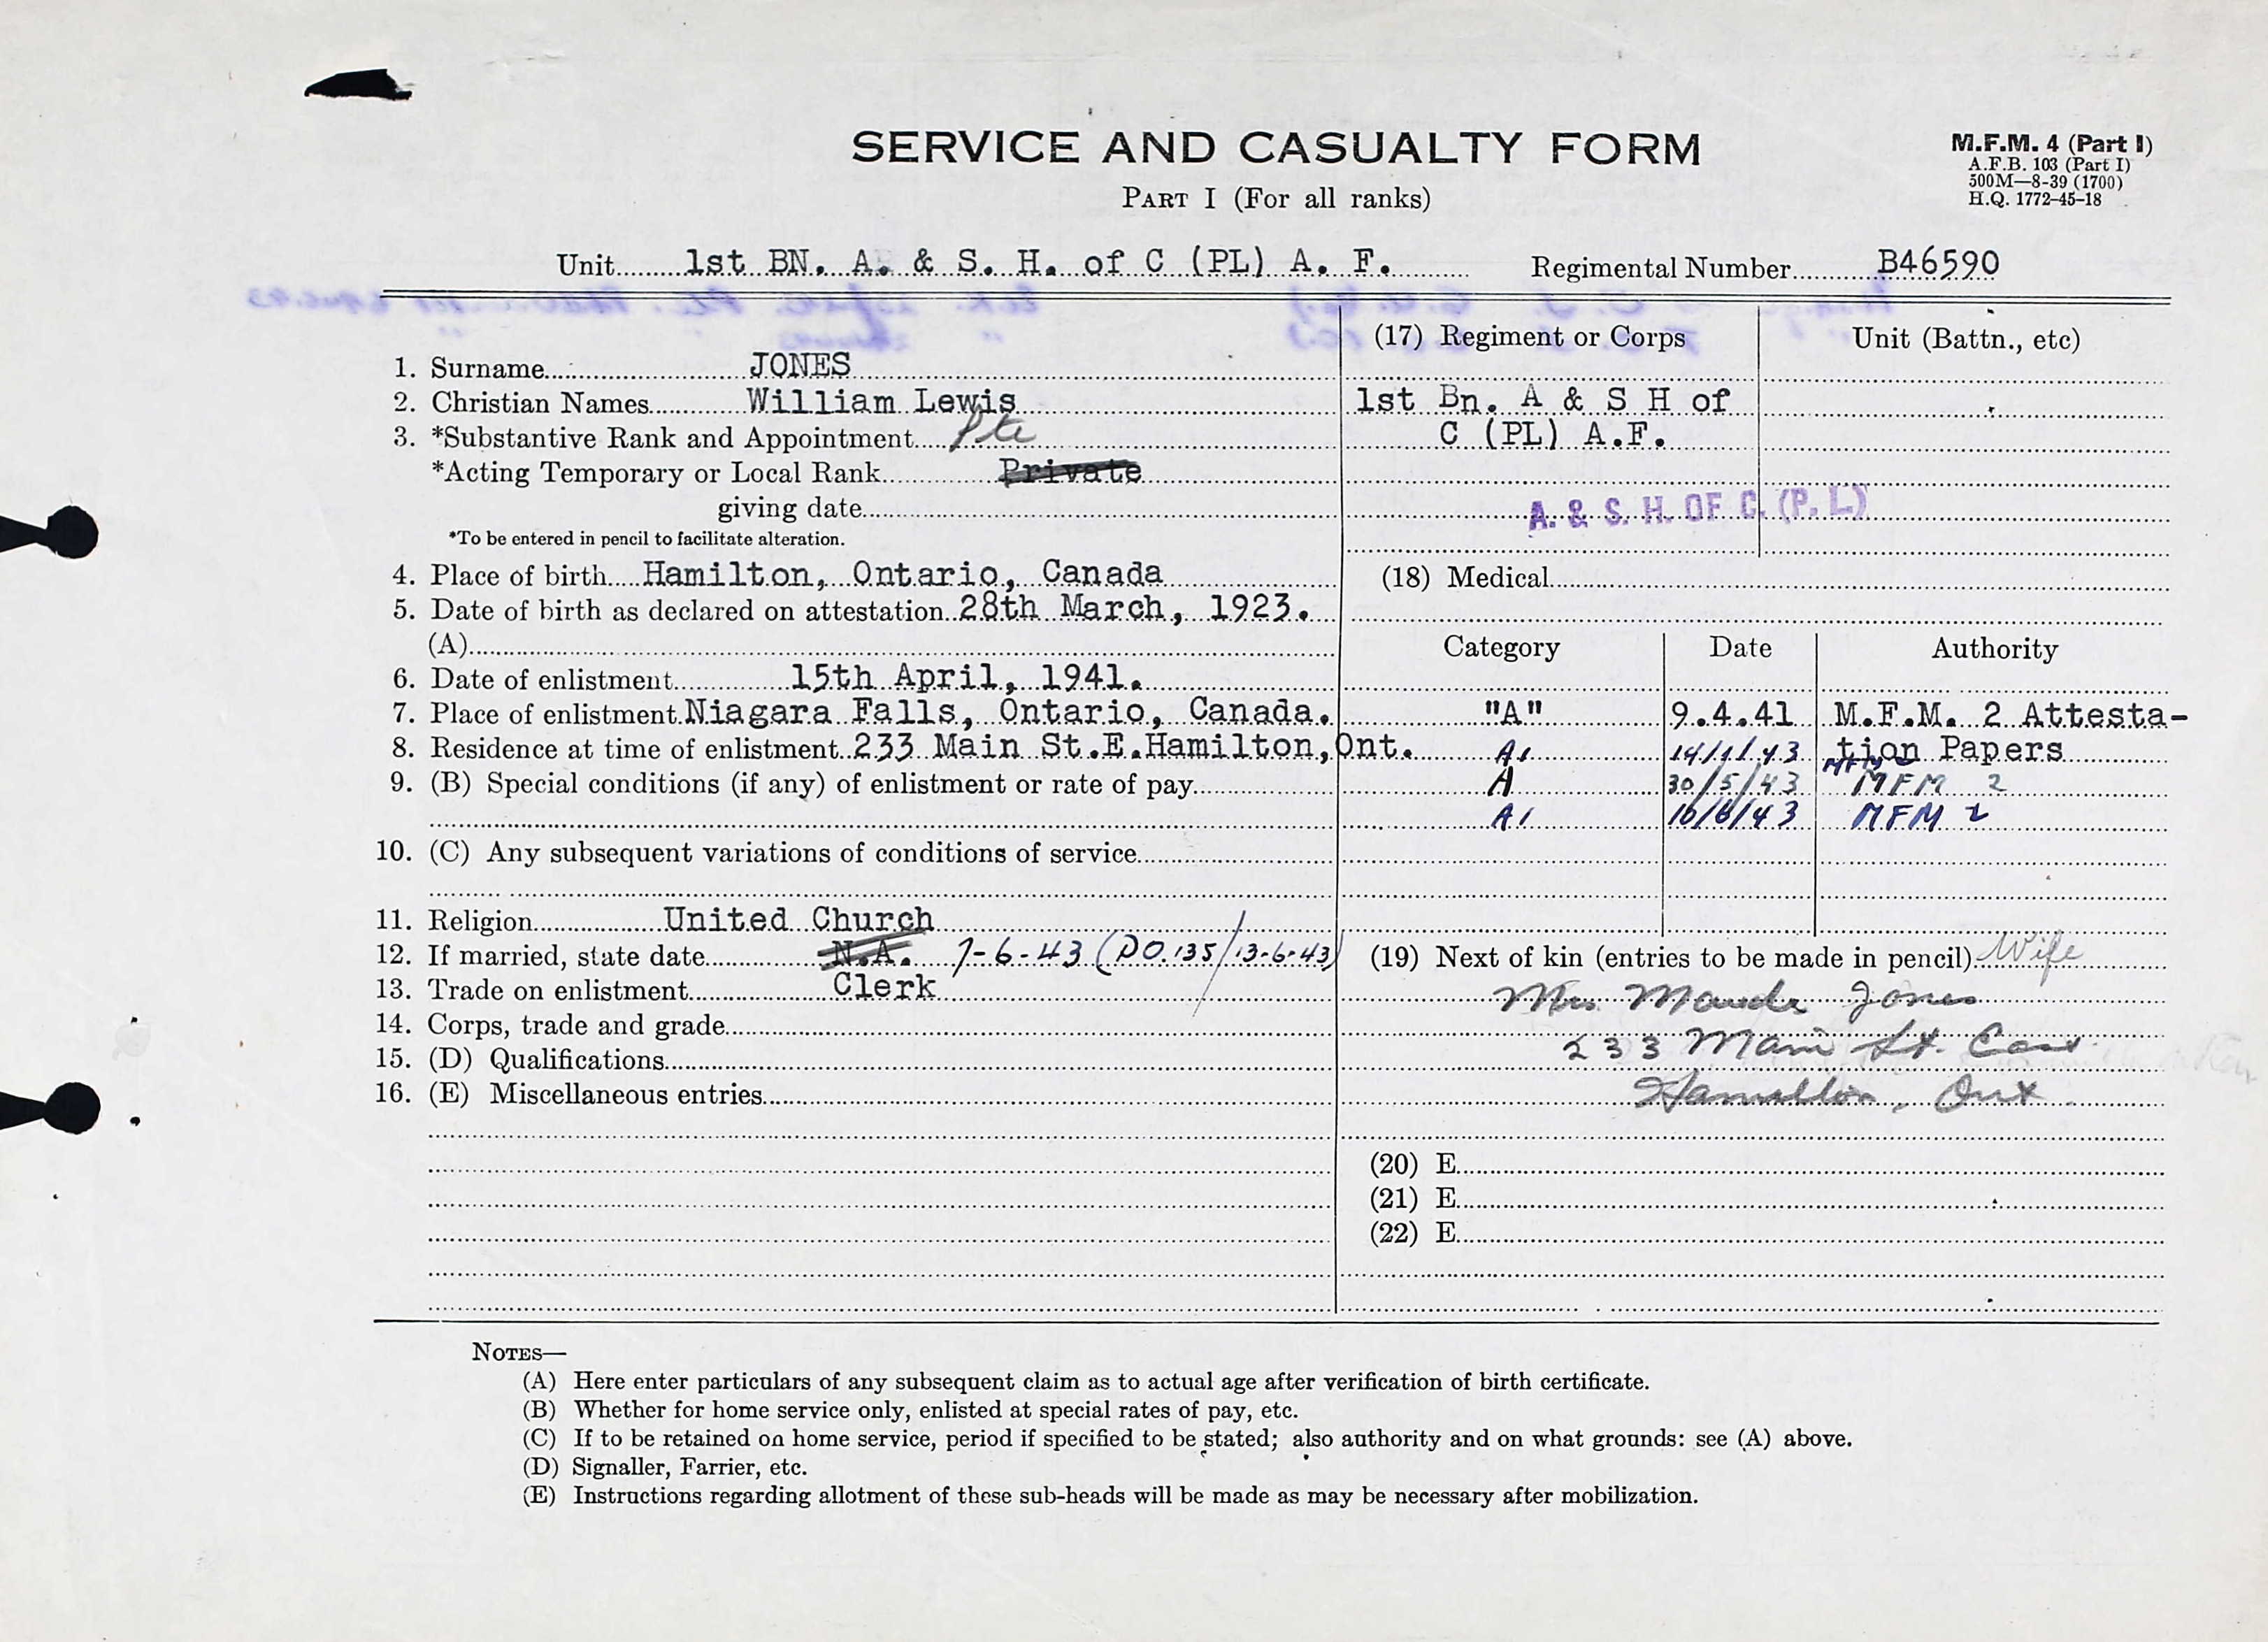 SERVICE AND CASUALTY FORM
M.F.M. 4 (Part I)
A.F.B. 103 (Part I)
500M—8-39 (1700)
H.Q. 1772-45-18
PART I (For all ranks)
Unit 1st BN. A. & S. H. of C (PL) A. F. Regimental Number B46590
1. Surname JONES
2. Christian Names William Lewis
3. *Substantive Rank and Appointment Pte
*Acting Temporary or Local Rank Private
giving date
*To be entered in pencil to facilitate alteration.
4. Place of birth Hamilton, Ontario, Canada
5. Date of birth as declared on attestation 28th March, 1923.
(A)
6. Date of enlistment 15th April, 1941.
7. Place of enlistment Niagara Falls, Ontario, Canada.
8. Residence at time of enlistment 233 Main St.E.Hamilton,Ont.
9. (B) Special conditions (if any) of enlistment or rate of pay
10. (C) Any subsequent variations of conditions of service
11. Religion United Church
12. If married, state date N.A. 7-6-43 (DO.135/13-6-43)
13. Trade on enlistment Clerk
14. Corps, trade and grade
15. (D) Qualifications
16. (E) Miscellaneous entries
(17) Regiment or Corps Unit (Battn., etc)
1st Bn. A & S H of
C (PL) A.F.
A. & S. H. OF C. (P. L.)
(18) Medical
Category Date Authority
"A" 9.4.41 M.F.M. 2 Attesta-
A1 14/1/43 tion Papers
MFM 2
A 30/5/43 MFM 2
A1 10/6/43 MFM 2
(19) Next of kin (entries to be made in pencil) Wife
Mrs. Maude Jones
233 Main St. East
Hamilton, Ont
(20) E
(21) E
(22) E
NOTES—
(A) Here enter particulars of any subsequent claim as to actual age after verification of birth certificate.
(B) Whether for home service only, enlisted at special rates of pay, etc.
(C) If to be retained on home service, period if specified to be stated; also authority and on what grounds: see (A) above.
(D) Signaller, Farrier, etc.
(E) Instructions regarding allotment of these sub-heads will be made as may be necessary after mobilization.